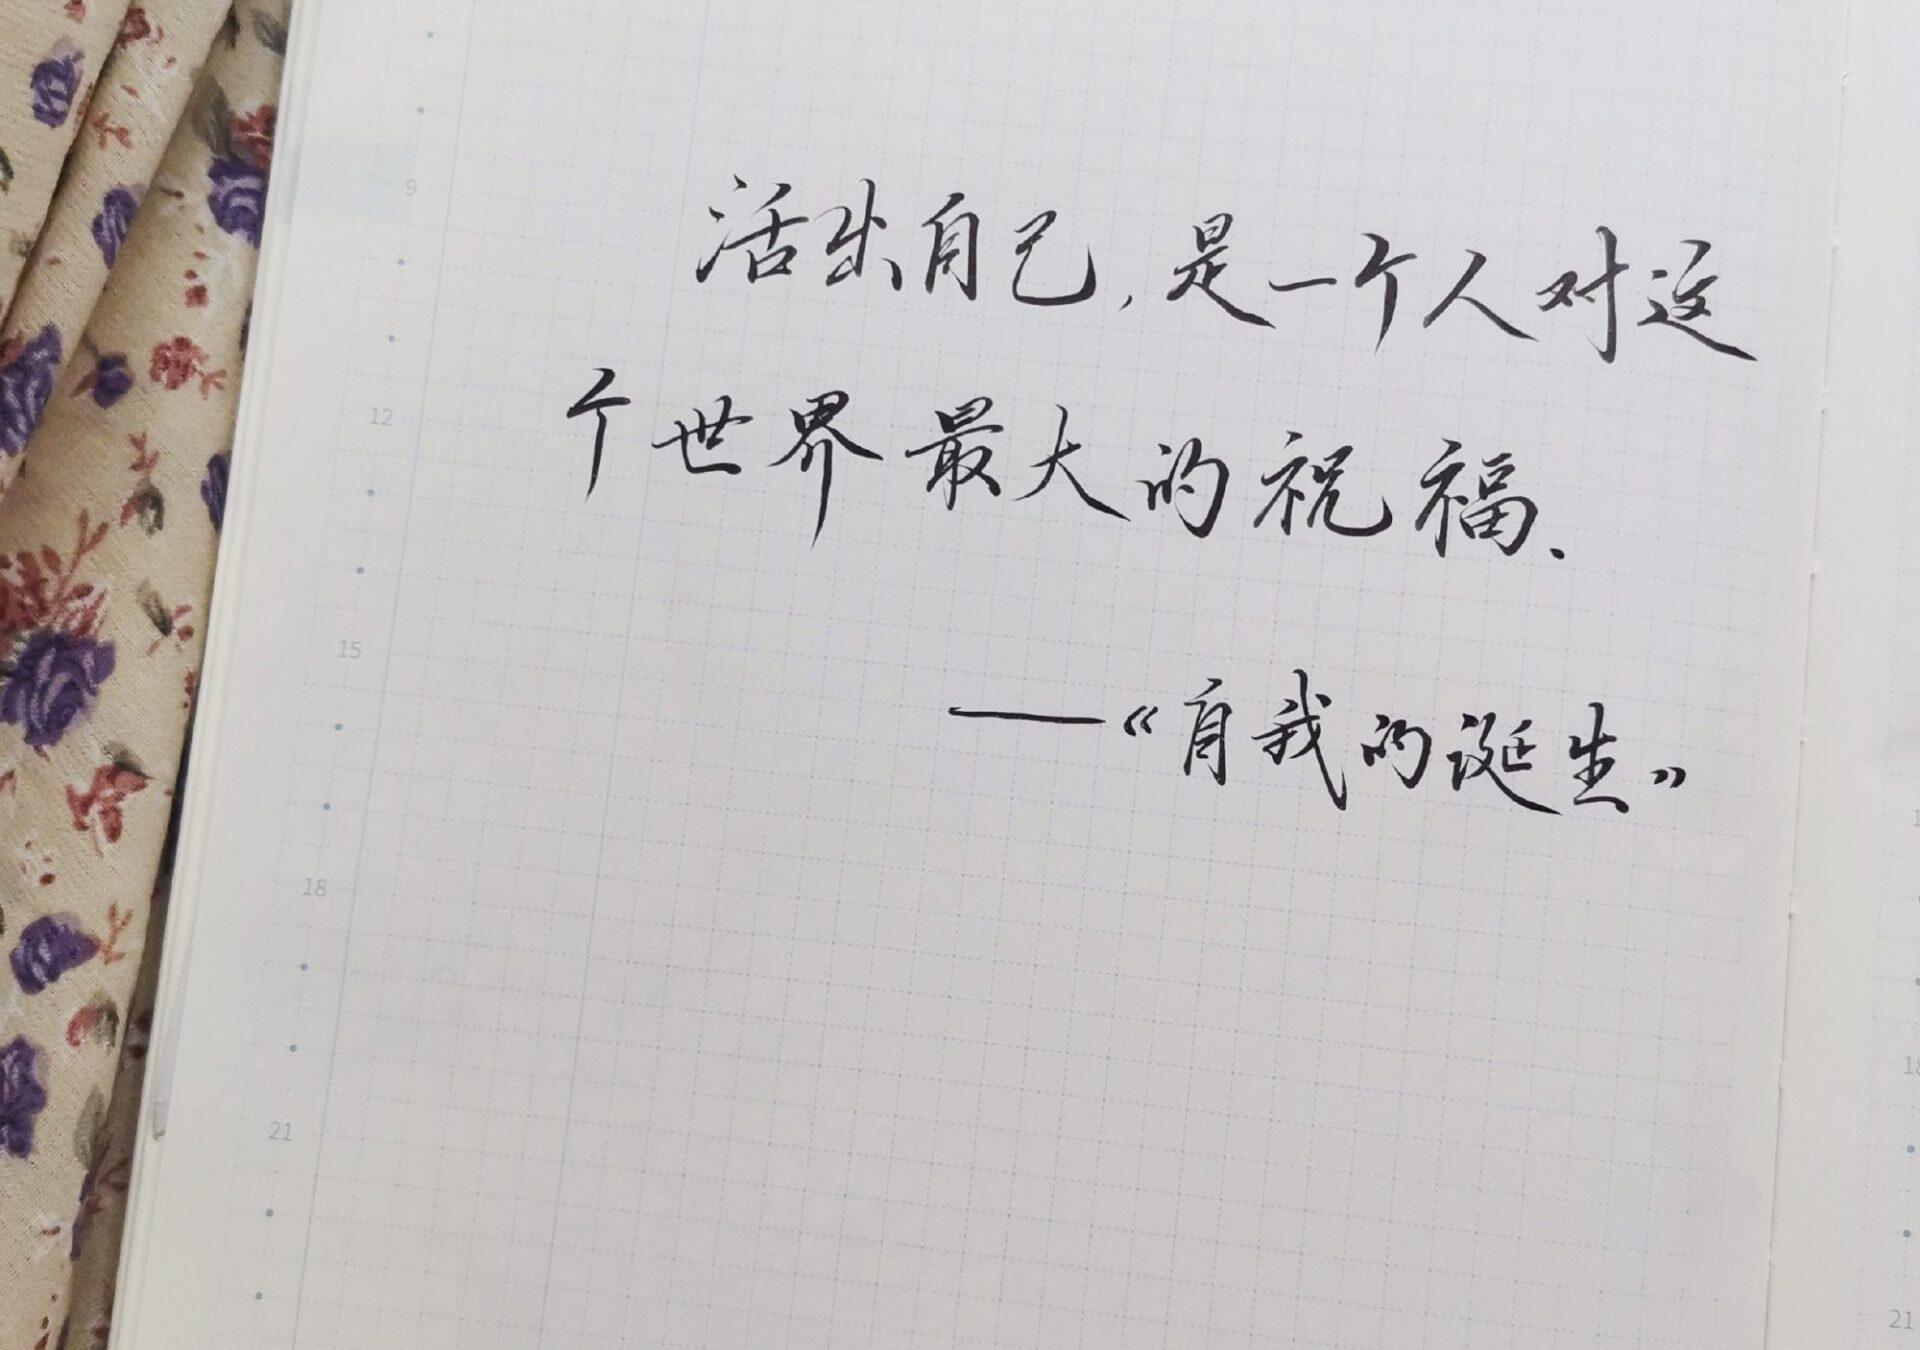 活出自己,是一个人对这
个世界最大的祝福.
——《自我的诞生》
9
12
15
18
21
18
21